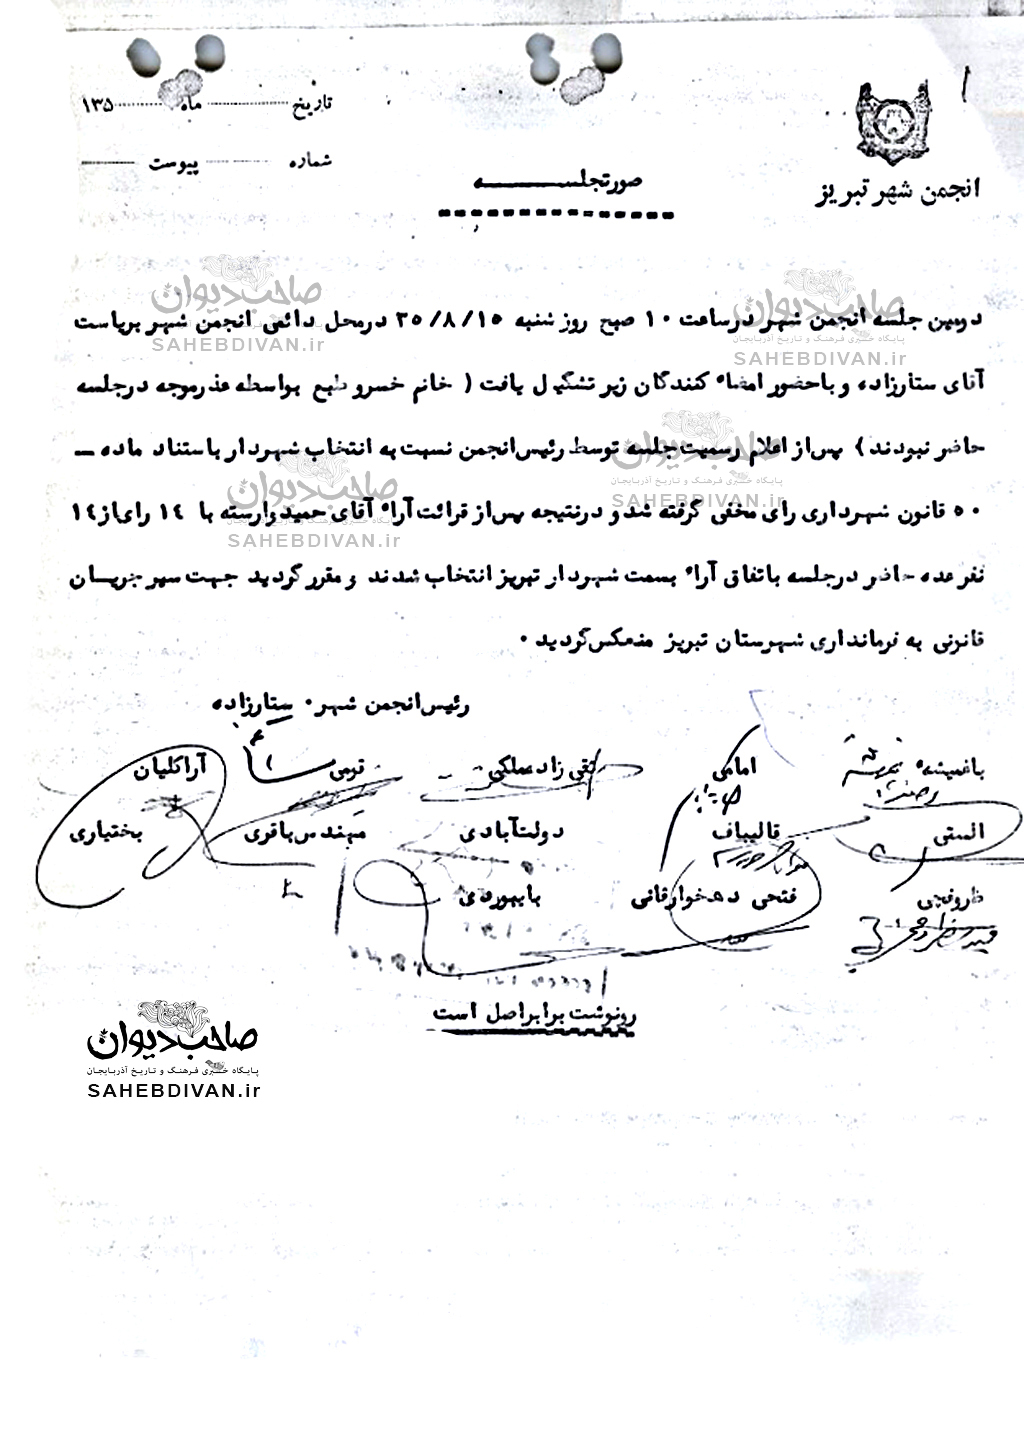 تاریخ ماه ۱۳۵
شماره پیوست
انجمن شهر تبریز
صورتجلسه
دومین جلسه انجمن شهر درساعت ۱۰ صبح روز شنبه ۳۵/۸/۱۵ درمحل دائمی انجمن شهر بریاست
آقای ستارزاده و باحضور امضاء کنندگان زیر تشکیل یافت ( خانم خسرو طبع بواسطه عذرموجه درجلسه
حاضر نبودند ) پس از اعلام رسمیت جلسه توسط رئیس انجمن نسبت به انتخاب شهردار باستناد ماده ــ
۵۰ قانون شهرداری رای مخفی گرفته شد و درنتیجه پس از قرائت آراء آقای حمید وارسته با ۱۴ رای از ۱۴
نفر عده حاضر درجلسه باتفاق آراء بسمت شهردار تبریز انتخاب شدند و مقرر گردید جهت سیر جریان
قانونی به فرمانداری شهرستان تبریز منعکس گردید .
رئیس انجمن شهر . ستارزاده
باغمیشه امامی تقی زاد ملکی ترمی آراکلیان
الستی قالیباف دولت آبادی مهندس باقری بختیاری
ظروفچی فتحی دهخوارقانی بایبوردی
رونوشت برابر اصل است
صاحب دیوان
پایگاه خبری فرهنگ و تاریخ آذربایجان
SAHEBDIVAN.ir